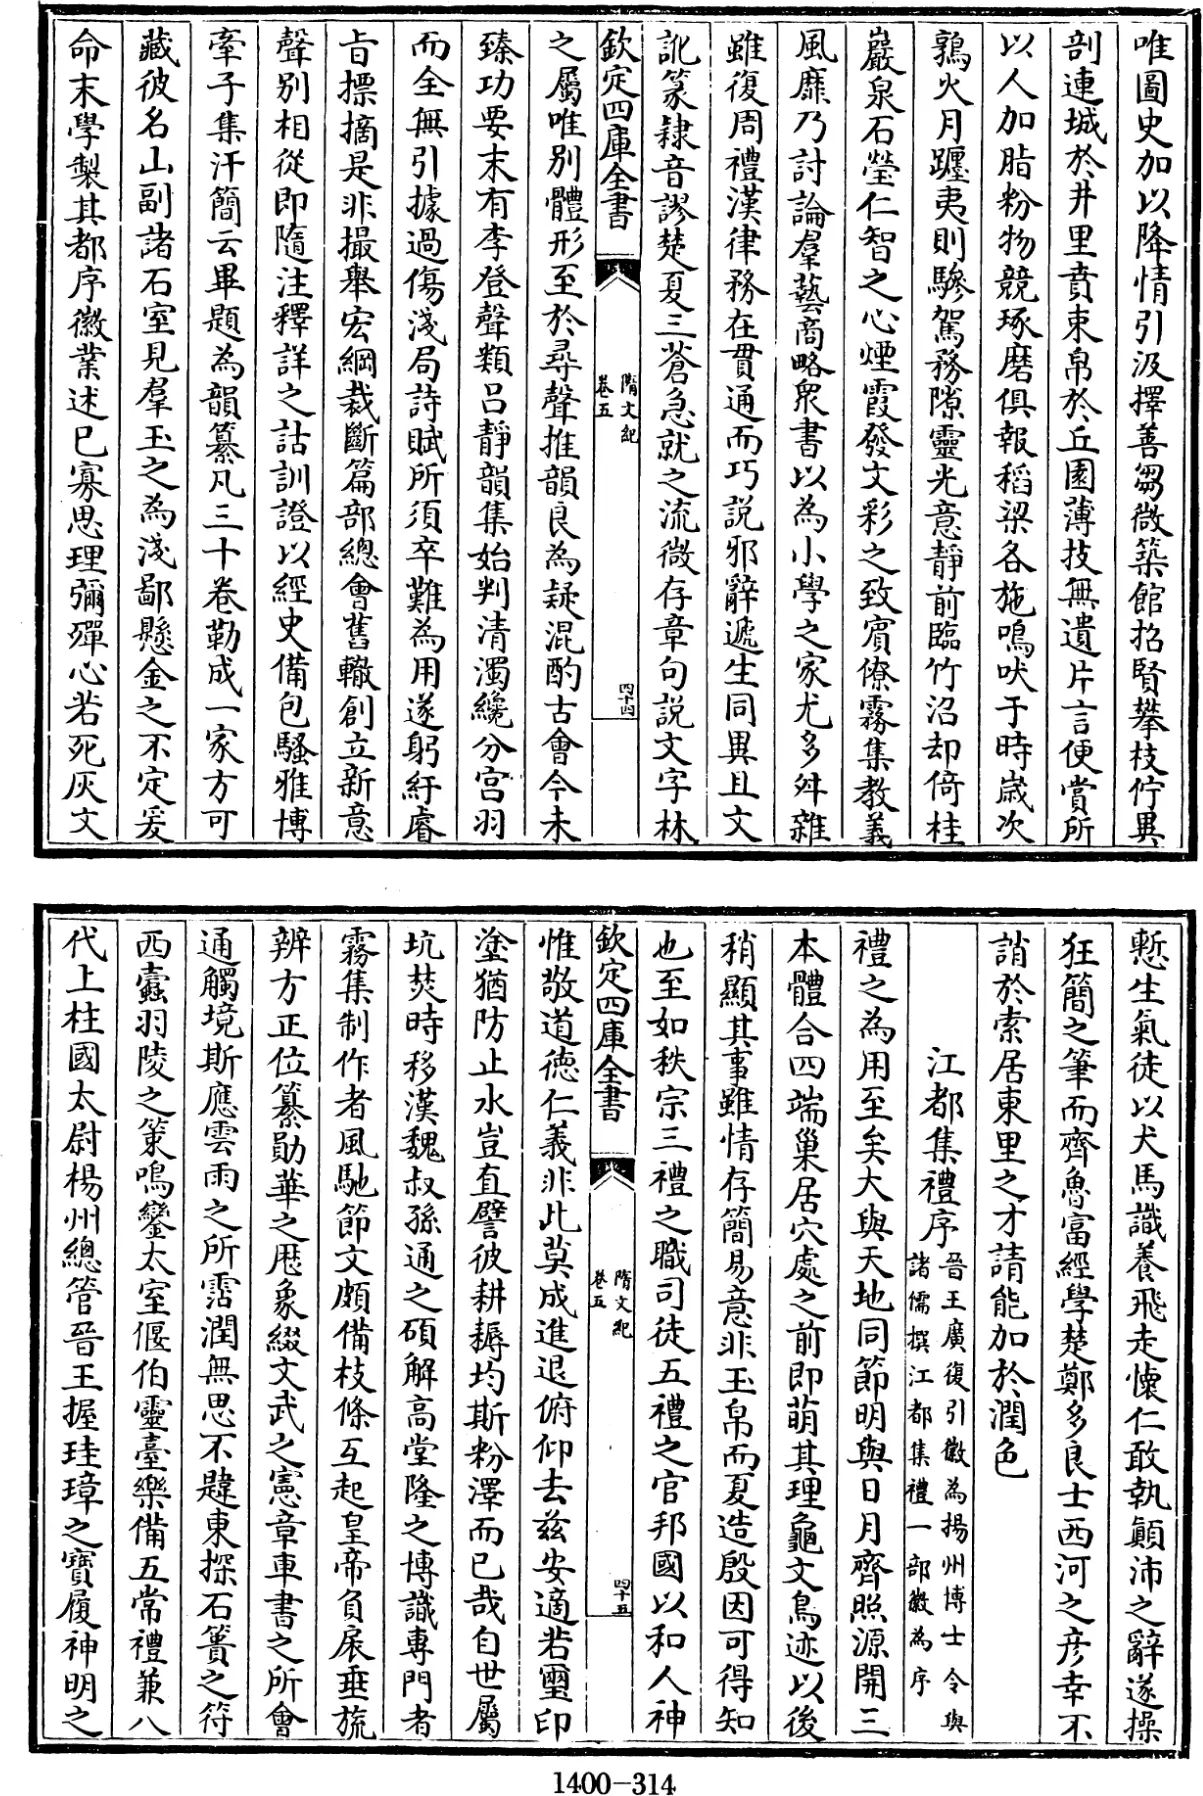 唯圖史加以降情引汲擇善芻微築館招賢攀枝佇異
剖連城於井里賁束帛於丘園薄技無遺片言便賞所
以人加脂粉物競琢磨俱報稻粱各施鳴吠于時歲次
鶉火月躔夷則驂駕務隙靈光意靜前臨竹沼却倚桂
巖泉石瑩仁智之心煙霞發文彩之致賓僚霧集教義
風靡乃討論羣藝商略衆書以為小學之家尤多舛雜
雖復周禮漢律務在貫通而巧説邪辭遞生同異且文
訛篆隷音謬楚夏三蒼急就之流微存章句説文字林
欽定四庫全書
隋文紀
卷五
四十四
之屬唯别體形至於尋聲推韻良為疑混酌古會今未
臻功要末有李登聲類呂靜韻集始判清濁纔分宫羽
而全無引據過傷淺局詩賦所須卒難為用遂躬紆睿
旨摽摘是非撮舉宏綱裁斷篇部總會舊轍創立新意
聲别相從即隨注釋詳之詁訓證以經史備包騷雅博
牽子集汗簡云畢題為韻纂凡三十卷勒成一家方可
藏彼名山副諸石室見羣玉之為淺鄙懸金之不定爰
命末學製其都序徽業述已寡思理彌殫心若死灰文
慙生氣徒以犬馬識養飛走懷仁敢執顛沛之辭遂操
狂簡之筆而齊魯富經學楚鄭多良士西河之彦幸不
誚於索居東里之才請能加於潤色
江都集禮序
晉王廣復引徽為揚州博士令與
諸儒撰江都集禮一部徽為序
禮之為用至矣大與天地同節明與日月齊照源開三
本體合四端巢居穴處之前即萌其理龜文鳥迹以後
稍顯其事雖情存簡易意非玉帛而夏造殷因可得知
也至如秩宗三禮之職司徒五禮之官邦國以和人神
欽定四庫全書
隋文紀
卷五
四十五
惟敬道德仁義非此莫成進退俯仰去兹安適若璽印
塗猶防止水豈直譬彼耕耨均斯粉澤而已哉自世屬
坑焚時移漢魏叔孫通之碩解高堂隆之博識專門者
霧集制作者風馳節文頗備枝條互起皇帝負扆垂旒
辨方正位纂勛華之厯象綴文武之憲章車書之所會
通觸境斯應雲雨之所霑潤無思不韙東探石簣之符
西蠹羽陵之策鳴鑾太室偃伯靈臺樂備五常禮兼八
代上柱國太尉楊州總管晉王握珪璋之寶履神明之
1400-314